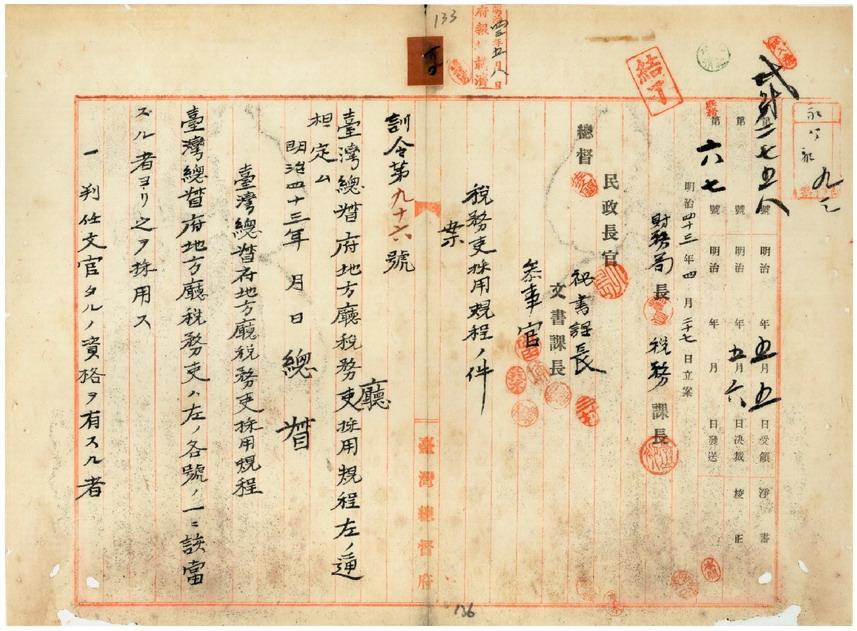 133
府報ニ載済
結了
永公记
九ノ二
弐財二七五八
第 號 明治 年 五月 五日受領 淨書
第 號 明治 年 五月 六日決裁 校正
第 六七 號 明治 年 月 日發送
明治四十三年四月二十七日立案
財務局長 税務課長
民政長官 秘書課長
總督 文書課長
參事官
税務吏採用規程ノ件
案
訓令第九十六號
廳
臺灣總督府地方廳税務吏採用規程左ノ通
相定ム
明治四十三年 月 日 總督
臺灣總督府地方廳税務吏採用規程
臺灣總督府地方廳税務吏ハ左ノ各號ノ一ニ該當
スル者ヨリ之ヲ採用ス
一 判任文官タルノ資格ヲ有スル者
臺灣總督府
136